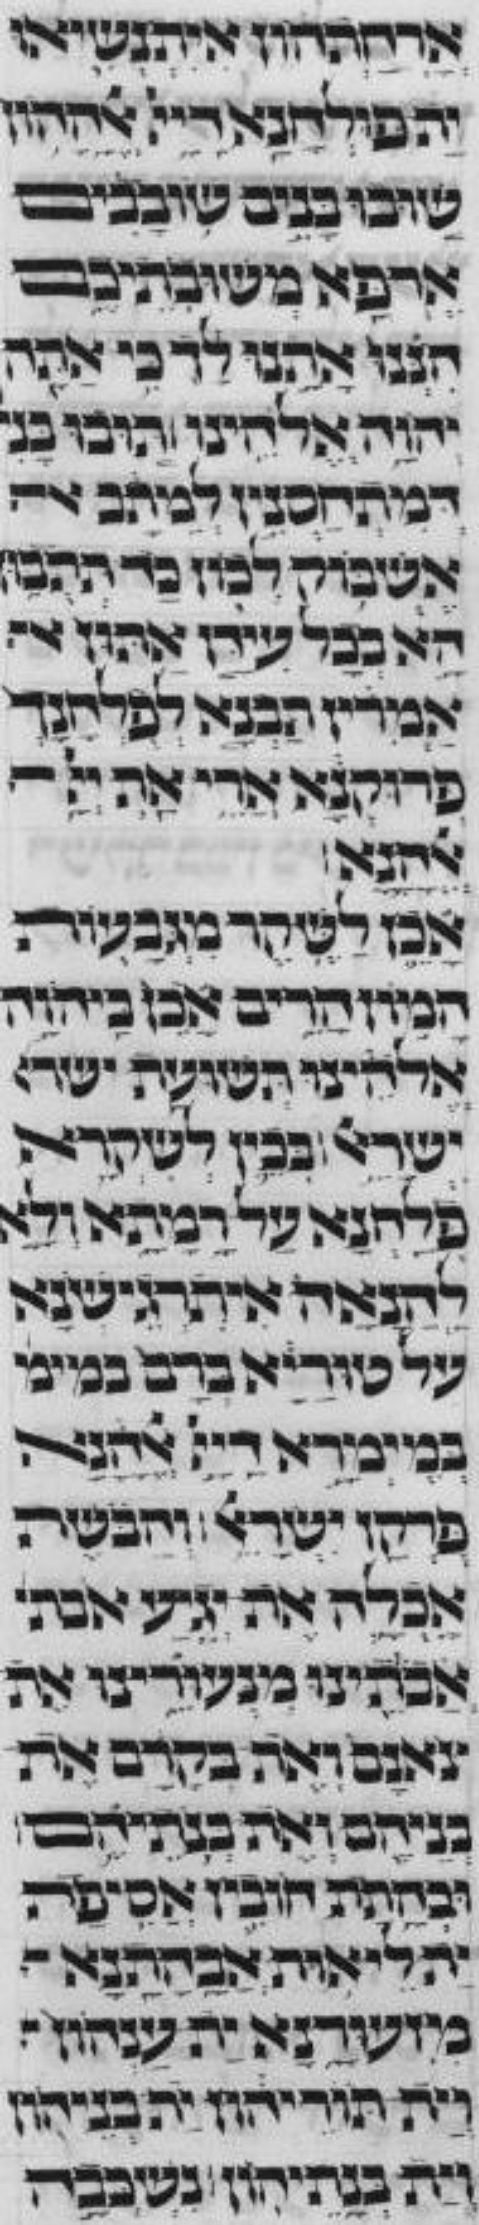 ארחתהון איתנשיאו
ית פולחנא דייי אלההון
שובו בנים שובבים
ארפא משובתיכם
הננו אתנו לך כי אתה
יהוה אלהינו תובו בני
דמתחסנין למתב אה
אשבוק לכון כד תתבון
הא בכל עידן אתון א
אמרין תבנא לפלחנך
פרוקנא ארי את ייי
אלהנא
אכן לשקר מגבעות
המון הרים אכן ביהוה
אלהינו תשועת ישר
ישראל בכין לשקרא
פלחנא על רמתא ולא
להנאה איתרגישנא
על טוריא ברם במימ
במימרא דייי אלהנא
פרקן ישראל והבשת
אכלה את יגיע אבתי
אבתינו מנעורינו את
צאנם ואת בקרם את
בניהם ואת בנתיהם
ובהתת חובין אסיפת
ית ליאות אבהתנא
מזעורנא ית ענהון
וית תוריהון ית בניהון
וית בנתיהון נשכבה